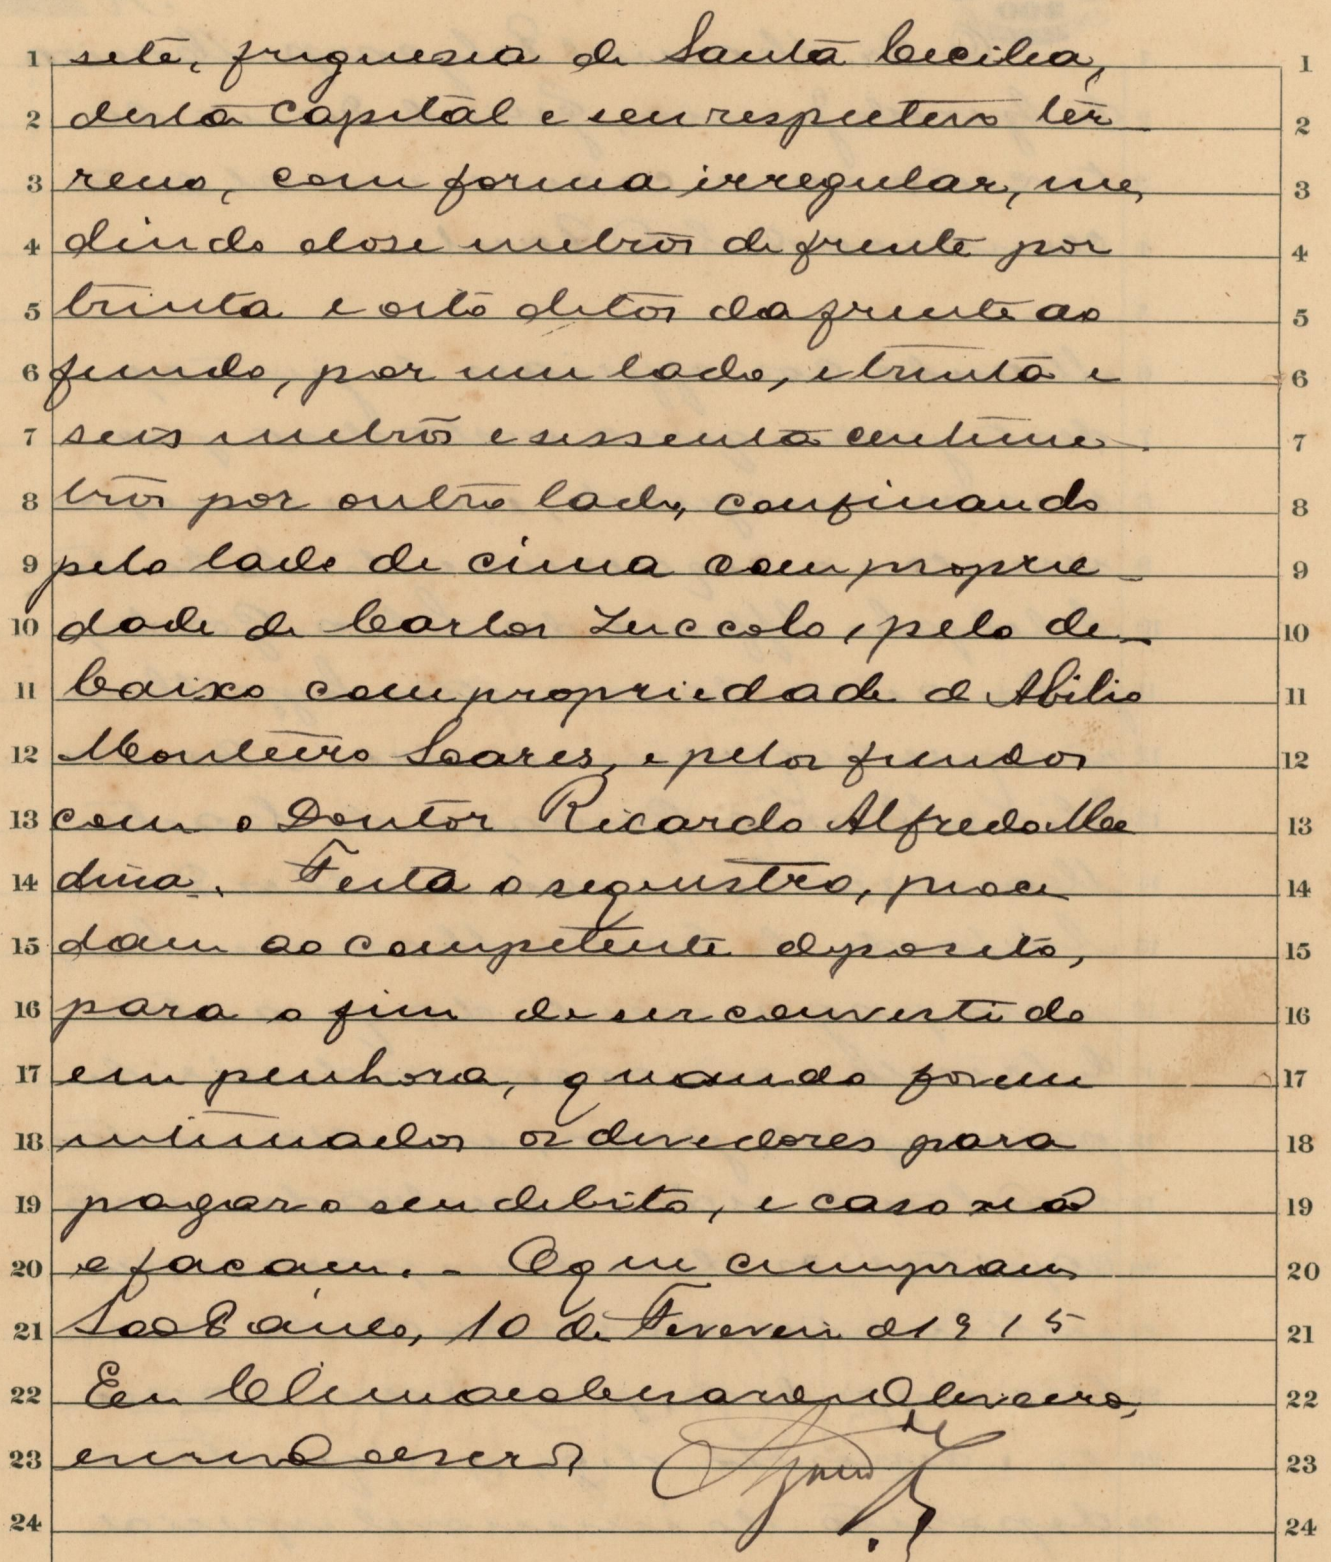 1 sete, freguesia de Santa Cecilia, 1
2 desta Capital e seu respectivo ter 2
3 reno, com forma irregular, me 3
4 dindo dose metros de frente por 4
5 trinta e oito ditos da frente ao 5
6 fundo, por um lado, e trinta e 6
7 seis metros e sessenta centime- 7
8 tros por outro lado, confinando 8
9 pelo lado de cima com proprie- 9
10 dade de Carlos Zuccolo, pelo de- 10
11 baixo com propriedade de Abilio 11
12 Monteiro Soares, e pelos fundos 12
13 com o Doutor Ricardo Alfredo Me 13
14 dina. Feita o sequestro, proce 14
15 dam ao competente deposito, 15
16 para o fim de ser convertido 16
17 em penhora, quando forem 17
18 intimados os devedores para 18
19 pagar o seu debito, e caso não 19
20 o facam. - O que cumpram 20
21 São Paulo, 10 de Fevereiro de 1915 21
22 Eu Oliveira, 22
23 23
24 24